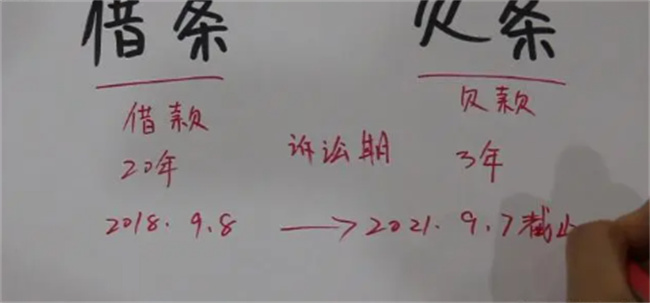 借条 欠条
借款 欠款
20年 诉讼期 3年
2018.9.8 → 2021.9.7截止